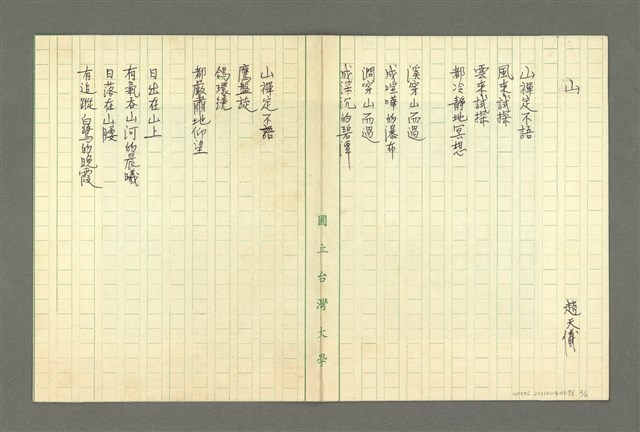 山
趙天儀
山禪定不語
風來試探
雲來試探
都冷靜地冥想
溪穿山而過
成喧嘩的瀑布
澗穿山而過
成深沉的碧潭
國立台灣大學
山禪定不語
鷹盤旋
鴿環繞
都嚴肅地仰望
日出在山上
有氣吞山河的晨曦
日落在山腰
有追蹤白鷺的晚霞